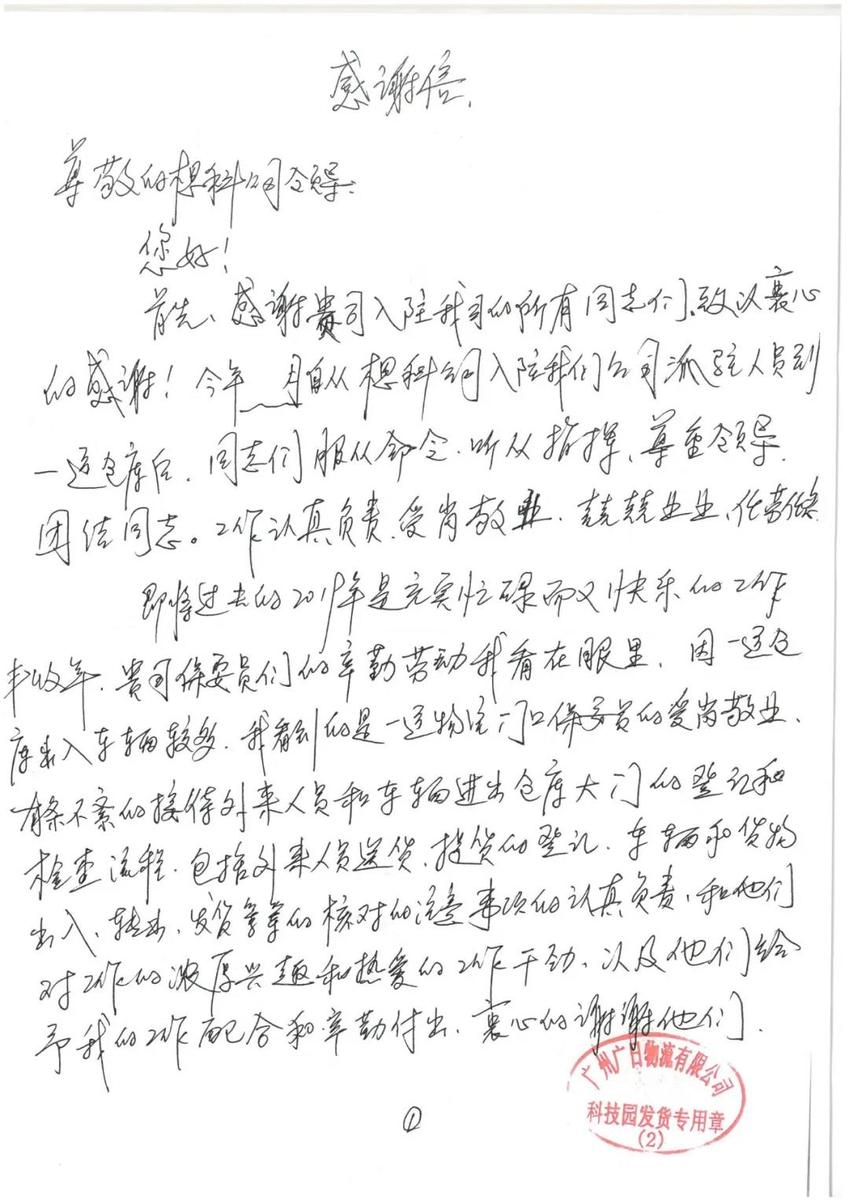 感谢信
尊敬的想科公司领导：
您好！
首先、感谢贵司入驻我司的所有同志们、致以衷心
的感谢！今年 月自从想科公司入驻我们公司派驻人员到
一运仓库后、同志们服从命令、听从指挥、尊重领导、
团结同志。工作认真负责、爱岗敬业、兢兢业业、任劳
即将过去的2019年是充实忙碌而又快乐的工作
丰收年、贵司保安员们的辛勤劳动我看在眼里、因一运仓
库出入车辆较多、我看到的是一运物流门口保安员的爱岗敬业、
有条不紊的接待外来人员和车辆进出仓库大门的登记和
检查流程、包括外来人员送货、提货的登记、车辆和货物
出入、转出、发货等等的核对的注意事项的认真负责、和他们
对工作的浓厚兴趣和热爱的工作干劲、以及他们给
予我的工作配合和辛勤付出、衷心的谢谢他们、
广州广日物流有限公司
科技园发货专用章
(2)
①